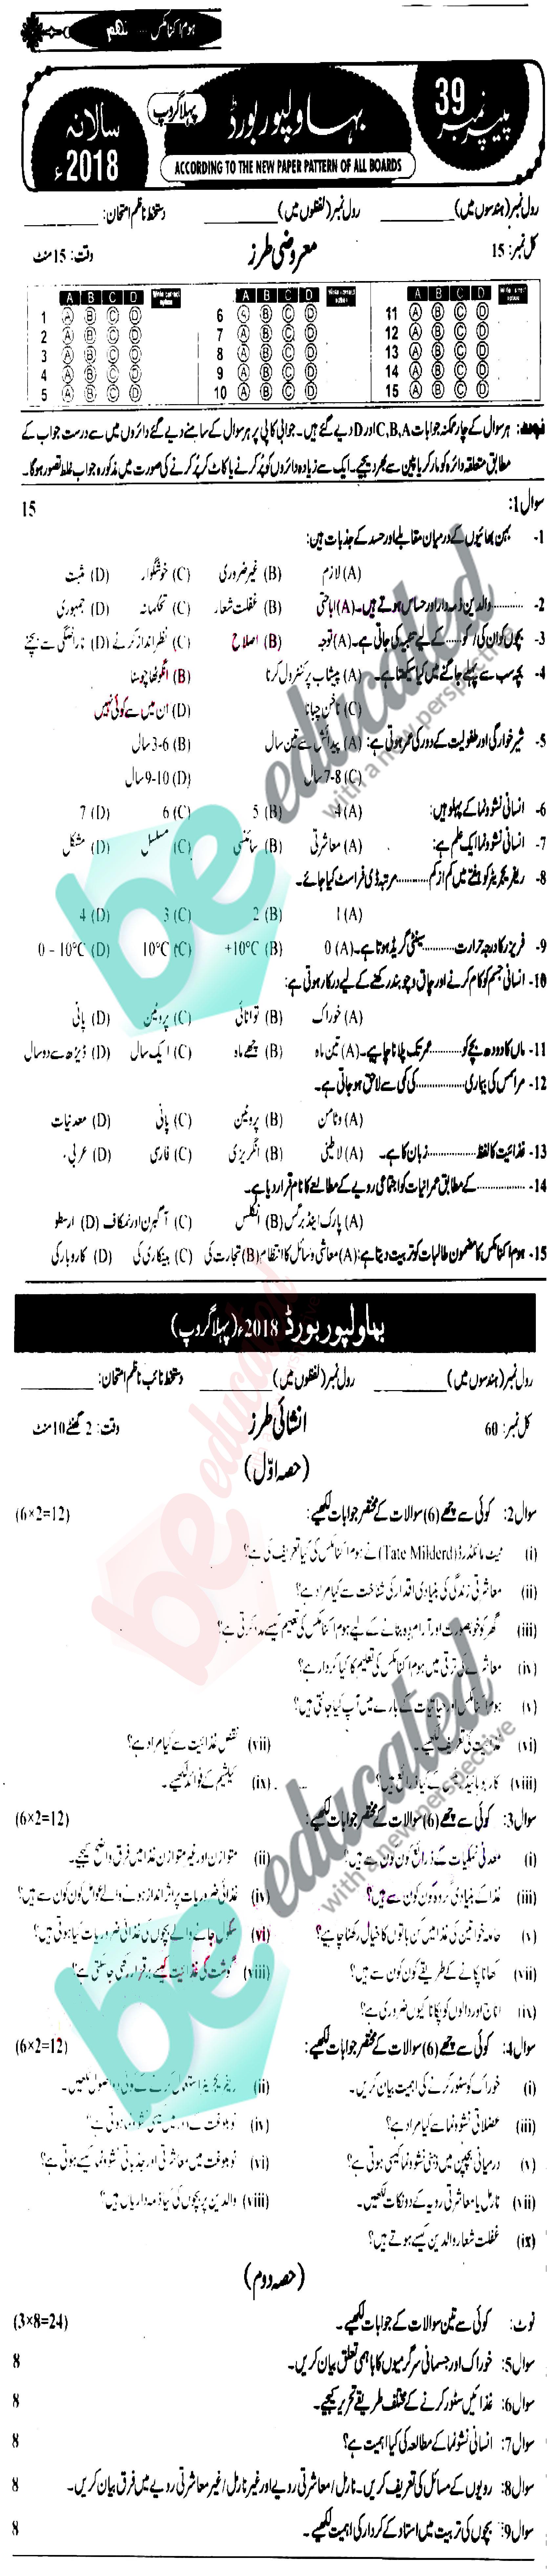 ہوم اکنامکس ... نہم
پیپر نمبر 39
بہاولپور بورڈ
پہلا گروپ
سالانہ 2018ء
ACCORDING TO THE NEW PAPER PATTERN OF ALL BOARDS
رول نمبر (ہندسوں میں) ________ رول نمبر (لفظوں میں) ________ دستخط ناظم امتحان: ________
کل نمبر: 15 معروضی طرز وقت: 15 منٹ
A B C D Write correct option A B C D Write correct option A B C D Write correct option
1 A B C D 6 A B C D 11 A B C D
2 A B C D 7 A B C D 12 A B C D
3 A B C D 8 A B C D 13 A B C D
4 A B C D 9 A B C D 14 A B C D
5 A B C D 10 A B C D 15 A B C D
نوٹ: ہر سوال کے چار ممکنہ جوابات C,B,A اور D دیے گئے ہیں۔ جوابی کاپی پر ہر سوال کے سامنے دیے گئے دائروں میں سے درست جواب کے
مطابق متعلقہ دائرہ کو مارکر یا پین سے بھر دیجیے۔ ایک سے زیادہ دائروں کو پُر کرنے یا کاٹ کر پُر کرنے کی صورت میں مذکورہ جواب غلط تصور ہوگا۔
سوال 1: 15
1- بہن بھائیوں کے درمیان مقابلے اور حسد کے جذبات ہیں:
(A) لازم (B) غیر ضروری (C) خوشگوار (D) مثبت
2- ............ والدین ذمہ دار اور حساس ہوتے ہیں۔ (A) اباحتی (B) غفلت شعار (C) تحکمانہ (D) جمہوری
3- بچوں کو ان کی/کو ..... کے لیے تنبیہ کی جاتی ہے۔ (A) توجہ (B) اصلاح (C) نظر انداز کرنے (D) ناراضگی سے بچنے
4- بچہ سب سے پہلے جاگنے میں کیا سیکھتا ہے۔ (A) پیشاب پر کنٹرول کرنا (B) انگوٹھا چوسنا
(C) ناخن چبانا (D) ان میں سے کوئی نہیں
5- شیر خوارگی اور طفولیت کے دور کی عمر ہوتی ہے: (A) پیدائش سے تین سال (B) 3-6 سال
(C) 7-8 سال (D) 9-10 سال
6- انسانی نشوونما کے پہلو ہیں: (A) 4 (B) 5 (C) 6 (D) 7
7- انسانی نشوونما ایک علم ہے: (A) معاشرتی (B) سائنسی (C) مسلسل (D) مشکل
8- ریفریجریٹر کو ہفتے میں کم از کم ............ مرتبہ ڈی فراسٹ کیا جائے۔
(A) 1 (B) 2 (C) 3 (D) 4
9- فریزر کا درجہ حرارت ............ سینٹی گریڈ ہوتا ہے۔ (A) 0 (B) +10°C (C) 10°C (D) 0 - 10°C
10- انسانی جسم کو کام کرنے اور چاق و چوبند رکھنے کے لیے درکار ہوتی ہے:
(A) خوراک (B) توانائی (C) پروٹین (D) پانی
11- ماں کا دودھ بچے کو ............ عمر تک پلانا چاہیے۔ (A) تین ماہ (B) چھے ماہ (C) ایک سال (D) ڈیڑھ سے دو سال
12- مراسمس کی بیماری ............ کی کمی سے لاحق ہو جاتی ہے۔
(A) وٹامن (B) پروٹین (C) پانی (D) معدنیات
13- غذائیت کا لفظ ............ زبان کا ہے۔ (A) لاطینی (B) انگریزی (C) فارسی (D) عربی
14- ............ کے مطابق عمرانیات کو اجتماعی رویے کے مطالعے کا نام قرار دیا ہے۔
(A) پارک اینڈ برگس (B) انگلس (C) آگبرن اور نمکاف (D) ارسطو
15- ہوم اکنامکس کا مضمون طالبات کو تربیت دیتا ہے: (A) معاشی وسائل کا انتظام (B) تجارت کی (C) بینکاری کی (D) کاروبار کی
بہاولپور بورڈ 2018ء (پہلا گروپ)
رول نمبر (ہندسوں میں) ________ رول نمبر (لفظوں میں) ________ دستخط نائب ناظم امتحان: ________
کل نمبر: 60 انشائی طرز وقت: 2 گھنٹے 10 منٹ
(حصہ اوّل)
سوال 2: کوئی سے چھے (6) سوالات کے مختصر جوابات لکھیے: (6×2=12)
(i) ٹیٹ مائلڈرڈ (Tate Milderd) نے ہوم اکنامکس کی کیا تعریف کی ہے؟
(ii) معاشرتی زندگی کی بنیادی اقدار کی شناخت سے کیا مراد ہے؟
(iii) گھر کو خوبصورت اور آرام دہ بنانے کے لیے ہوم اکنامکس کی تعلیم کیسے مدد کرتی ہے؟
(iv) معاشرے کی ترقی میں ہوم اکنامکس کی تعلیم کا کیا کردار ہے؟
(v) ہوم اکنامکس اور حیاتیات کے بارے میں آپ کیا جانتی ہیں؟
(vi) غذائیت کی تعریف لکھیے۔ (vii) نقص غذائیت سے کیا مراد ہے؟
(viii) کاربوہائیڈریٹس کے کیا ذرائع ہیں؟ (ix) کیلشیم کے فوائد لکھیے۔
سوال 3: کوئی سے چھے (6) سوالات کے مختصر جوابات لکھیے: (6×2=12)
(i) معدنی نمکیات کے ذرائع کون کون سے ہیں؟ (ii) متوازن اور غیر متوازن غذا میں فرق واضح کیجیے۔
(iii) غذا کے بنیادی گروہ کون کون سے ہیں؟ (iv) غذائی ضروریات پر اثر انداز ہونے والے عوامل کون کون سے ہیں؟
(v) حاملہ خواتین کی غذا میں کن باتوں کا خیال رکھنا چاہیے؟ (vi) سکول جانے والے بچوں کی غذائی ضروریات کیا ہوتی ہیں؟
(vii) کھانا پکانے کے طریقے کون کون سے ہیں؟ (viii) گوشت کی غذائیت کیسے برقرار رکھی جا سکتی ہے؟
(ix) اناج اور دالوں کو پکانا کیوں ضروری ہے؟
سوال 4: کوئی سے چھے (6) سوالات کے مختصر جوابات لکھیے: (6×2=12)
(i) خوراک کو سٹور کرنے کی اہمیت بیان کریں۔ (ii) ریفریجریٹر استعمال کرنے کے کوئی دو اصول لکھیں۔
(iii) عضلاتی نشوونما سے کیا مراد ہے؟ (iv) نوبلوغت کے دور میں ذہنی نشوونما ہوتی ہے؟
(v) درمیانی بچپن میں ذہنی نشوونما کیسی ہوتی ہے؟ (vi) نوبلوغت میں معاشرتی اور جذباتی نشوونما کیسے ہوتی ہے؟
(vii) نارمل یا معاشرتی رویہ کے دو نکات لکھیں۔ (viii) والدین پر بچوں کی کیا ذمہ داریاں ہیں؟
(ix) غفلت شعار والدین کیسے ہوتے ہیں؟
(حصہ دوم)
نوٹ: کوئی سے تین سوالات کے جوابات لکھیے۔ (3×8=24)
سوال 5: خوراک اور جسمانی سرگرمیوں کا باہمی تعلق بیان کریں۔ 8
سوال 6: غذائیں سٹور کرنے کے مختلف طریقے تحریر کیجیے۔ 8
سوال 7: انسانی نشوونما کے مطالعہ کی کیا اہمیت ہے؟ 8
سوال 8: رویوں کے مسائل کی تعریف کریں۔ نارمل/معاشرتی رویے اور غیر نارمل/غیر معاشرتی رویے میں فرق بیان کریں۔ 8
سوال 9: بچوں کی تربیت میں استاد کے کردار کی اہمیت لکھیے۔ 8
be educated
with a new perspective
be educated
be educated
with a new perspective